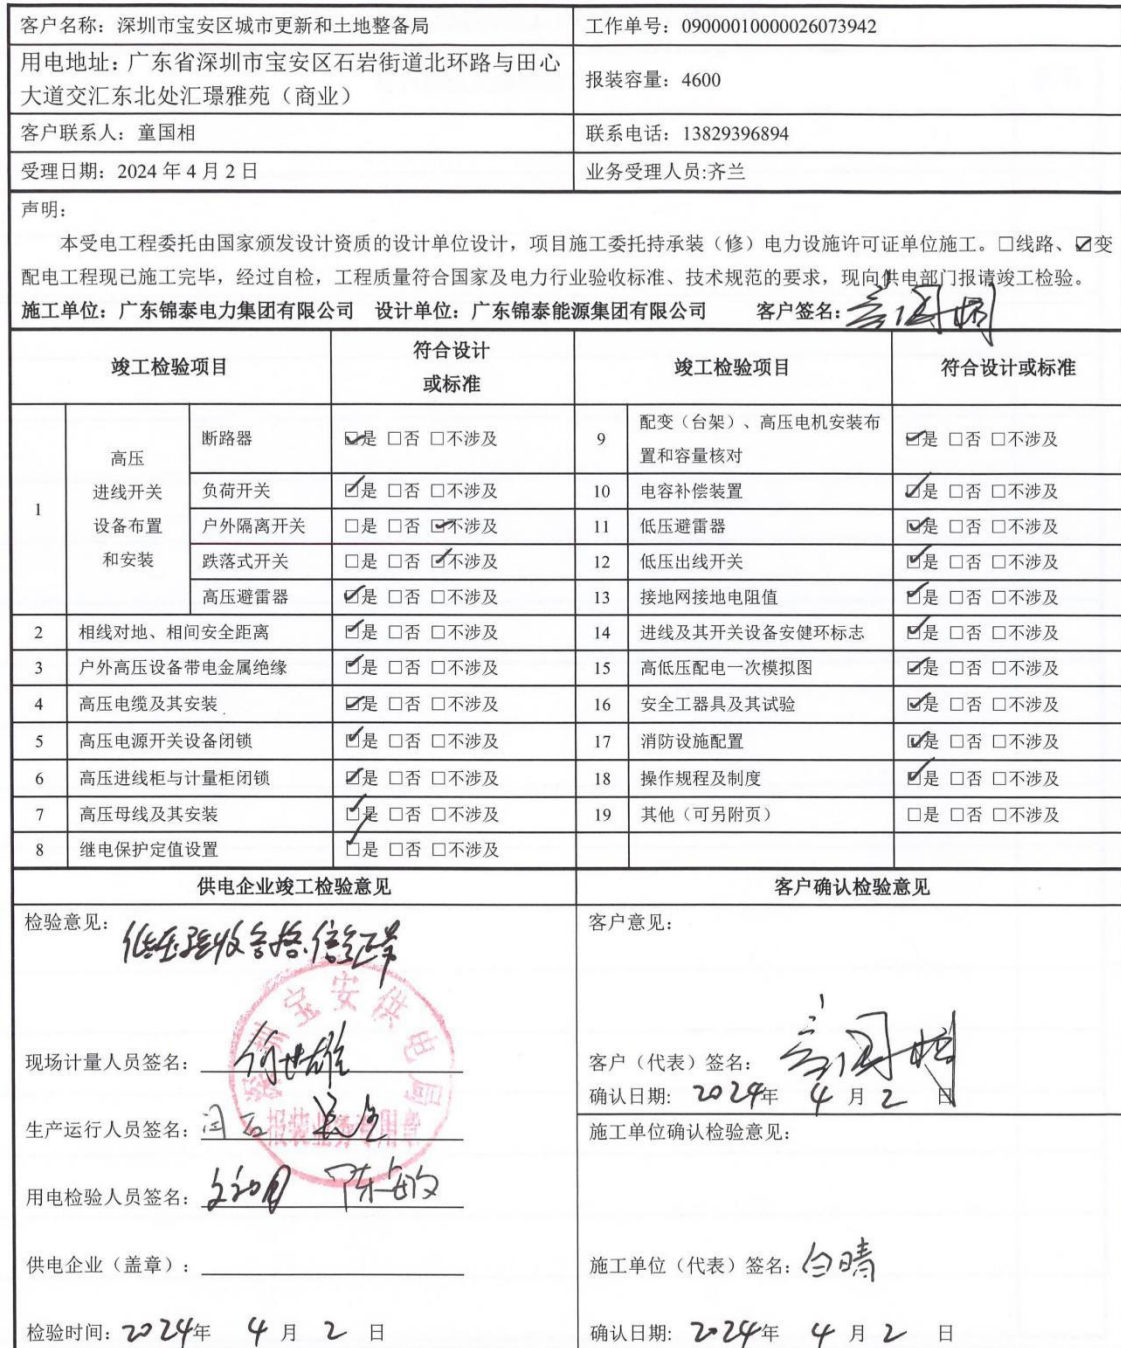 客户名称：深圳市宝安区城市更新和土地整备局 工作单号：09000010000026073942
用电地址：广东省深圳市宝安区石岩街道北环路与田心
大道交汇东北处汇璟雅苑（商业） 报装容量：4600
客户联系人：童国相 联系电话：13829396894
受理日期：2024 年 4 月 2 日 业务受理人员:齐兰
声明：
本受电工程委托由国家颁发设计资质的设计单位设计，项目施工委托持承装（修）电力设施许可证单位施工。□线路、☑变
配电工程现已施工完毕，经过自检，工程质量符合国家及电力行业验收标准、技术规范的要求，现向供电部门报请竣工检验。
施工单位：广东锦泰电力集团有限公司 设计单位：广东锦泰能源集团有限公司 客户签名：
竣工检验项目 符合设计 竣工检验项目 符合设计或标准
或标准
1 高压
进线开关
设备布置
和安装
断路器 ☑是 □否 □不涉及 9 配变（台架）、高压电机安装布
置和容量核对 ☑是 □否 □不涉及
负荷开关 ☑是 □否 □不涉及 10 电容补偿装置 ☑是 □否 □不涉及
户外隔离开关 □是 □否 ☑不涉及 11 低压避雷器 ☑是 □否 □不涉及
跌落式开关 □是 □否 ☑不涉及 12 低压出线开关 ☑是 □否 □不涉及
高压避雷器 ☑是 □否 □不涉及 13 接地网接地电阻值 ☑是 □否 □不涉及
2 相线对地、相间安全距离 ☑是 □否 □不涉及 14 进线及其开关设备安健环标志 ☑是 □否 □不涉及
3 户外高压设备带电金属绝缘 ☑是 □否 □不涉及 15 高低压配电一次模拟图 ☑是 □否 □不涉及
4 高压电缆及其安装 ☑是 □否 □不涉及 16 安全工器具及其试验 ☑是 □否 □不涉及
5 高压电源开关设备闭锁 ☑是 □否 □不涉及 17 消防设施配置 ☑是 □否 □不涉及
6 高压进线柜与计量柜闭锁 ☑是 □否 □不涉及 18 操作规程及制度 ☑是 □否 □不涉及
7 高压母线及其安装 ☑是 □否 □不涉及 19 其他（可另附页） □是 □否 □不涉及
8 继电保护定值设置 ☑是 □否 □不涉及
供电企业竣工检验意见 客户确认检验意见
检验意见： 低压验收合格 客户意见：
深圳宝安供电局
报装业务专用章
现场计量人员签名：何世雄 客户（代表）签名：
确认日期: 2024年 4 月 2 日
生产运行人员签名： 施工单位确认检验意见：
用电检验人员签名： 陈敏
供电企业（盖章）： 施工单位（代表）签名：白晴
检验时间: 2024年 4 月 2 日 确认日期: 2024年 4 月 2 日